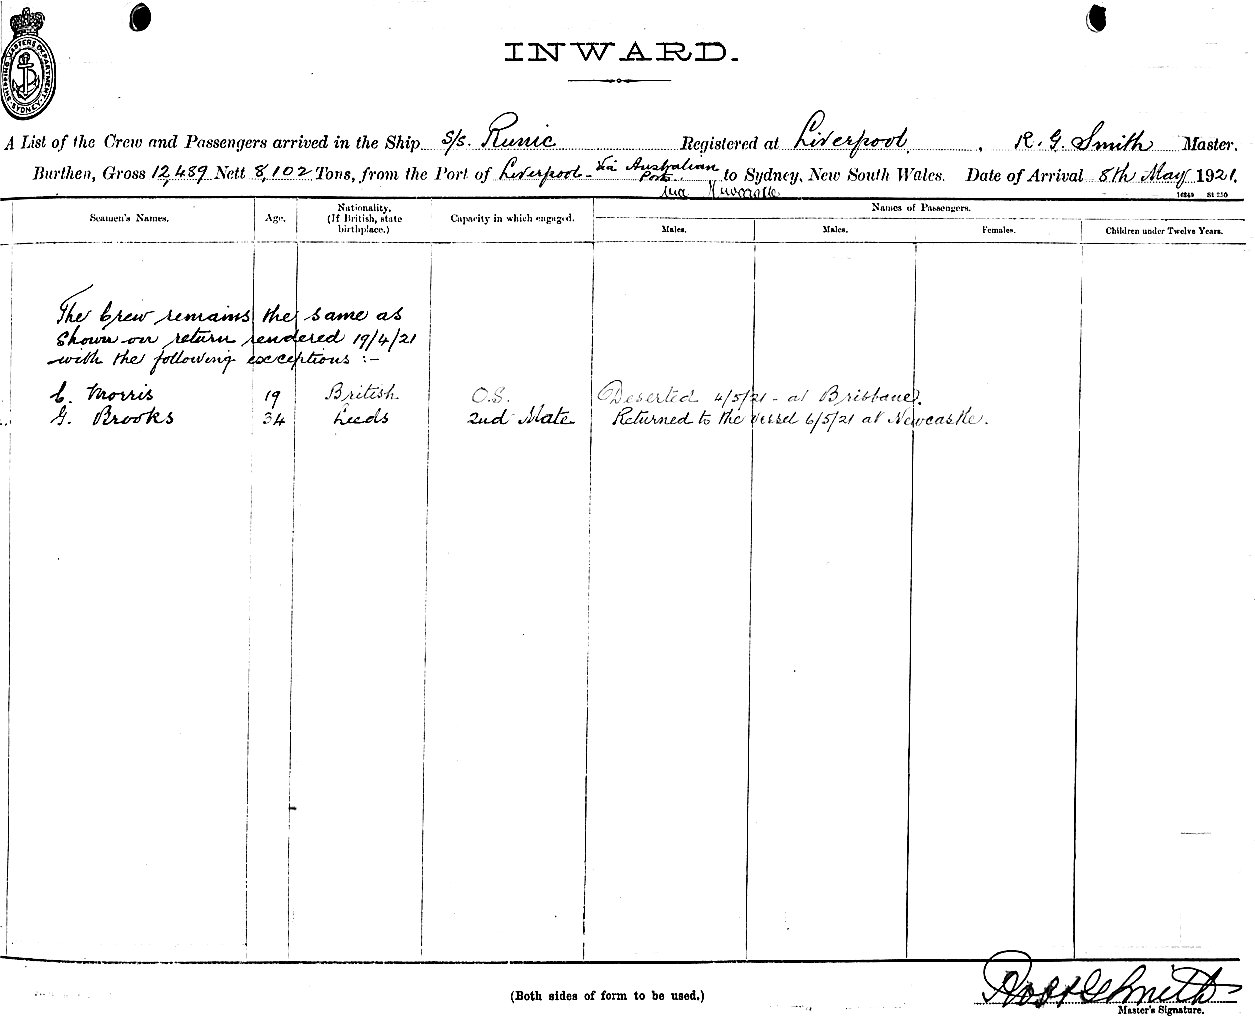 SHIPPING MASTERS DEPARTMENT SYDNEY
INWARD.
A List of the Crew and Passengers arrived in the Ship S/S. Runic Registered at Liverpool, R. G. Smith Master.
Burthen, Gross 12,489 Nett 8,102 Tons, from the Port of Liverpool - Via Australian Ports. to Sydney, New South Wales. Date of Arrival 8th May 1921.
via Newcastle
16849 St 250
Seamen's Names. Age. Nationality. (If British, state birthplace.) Capacity in which engaged. Names of Passengers.
Males. Males. Females. Children under Twelve Years.
The Crew remains the same as
Shown on return rendered 19/4/21
with the following exceptions :-
C. Morris 19 British O.S. Deserted 4/5/21 - at Brisbane.
G. Brooks 34 Leeds 2nd Mate Returned to the vessel 6/5/21 at Newcastle.
(Both sides of form to be used.)
Robt G Smith
Master's Signature.